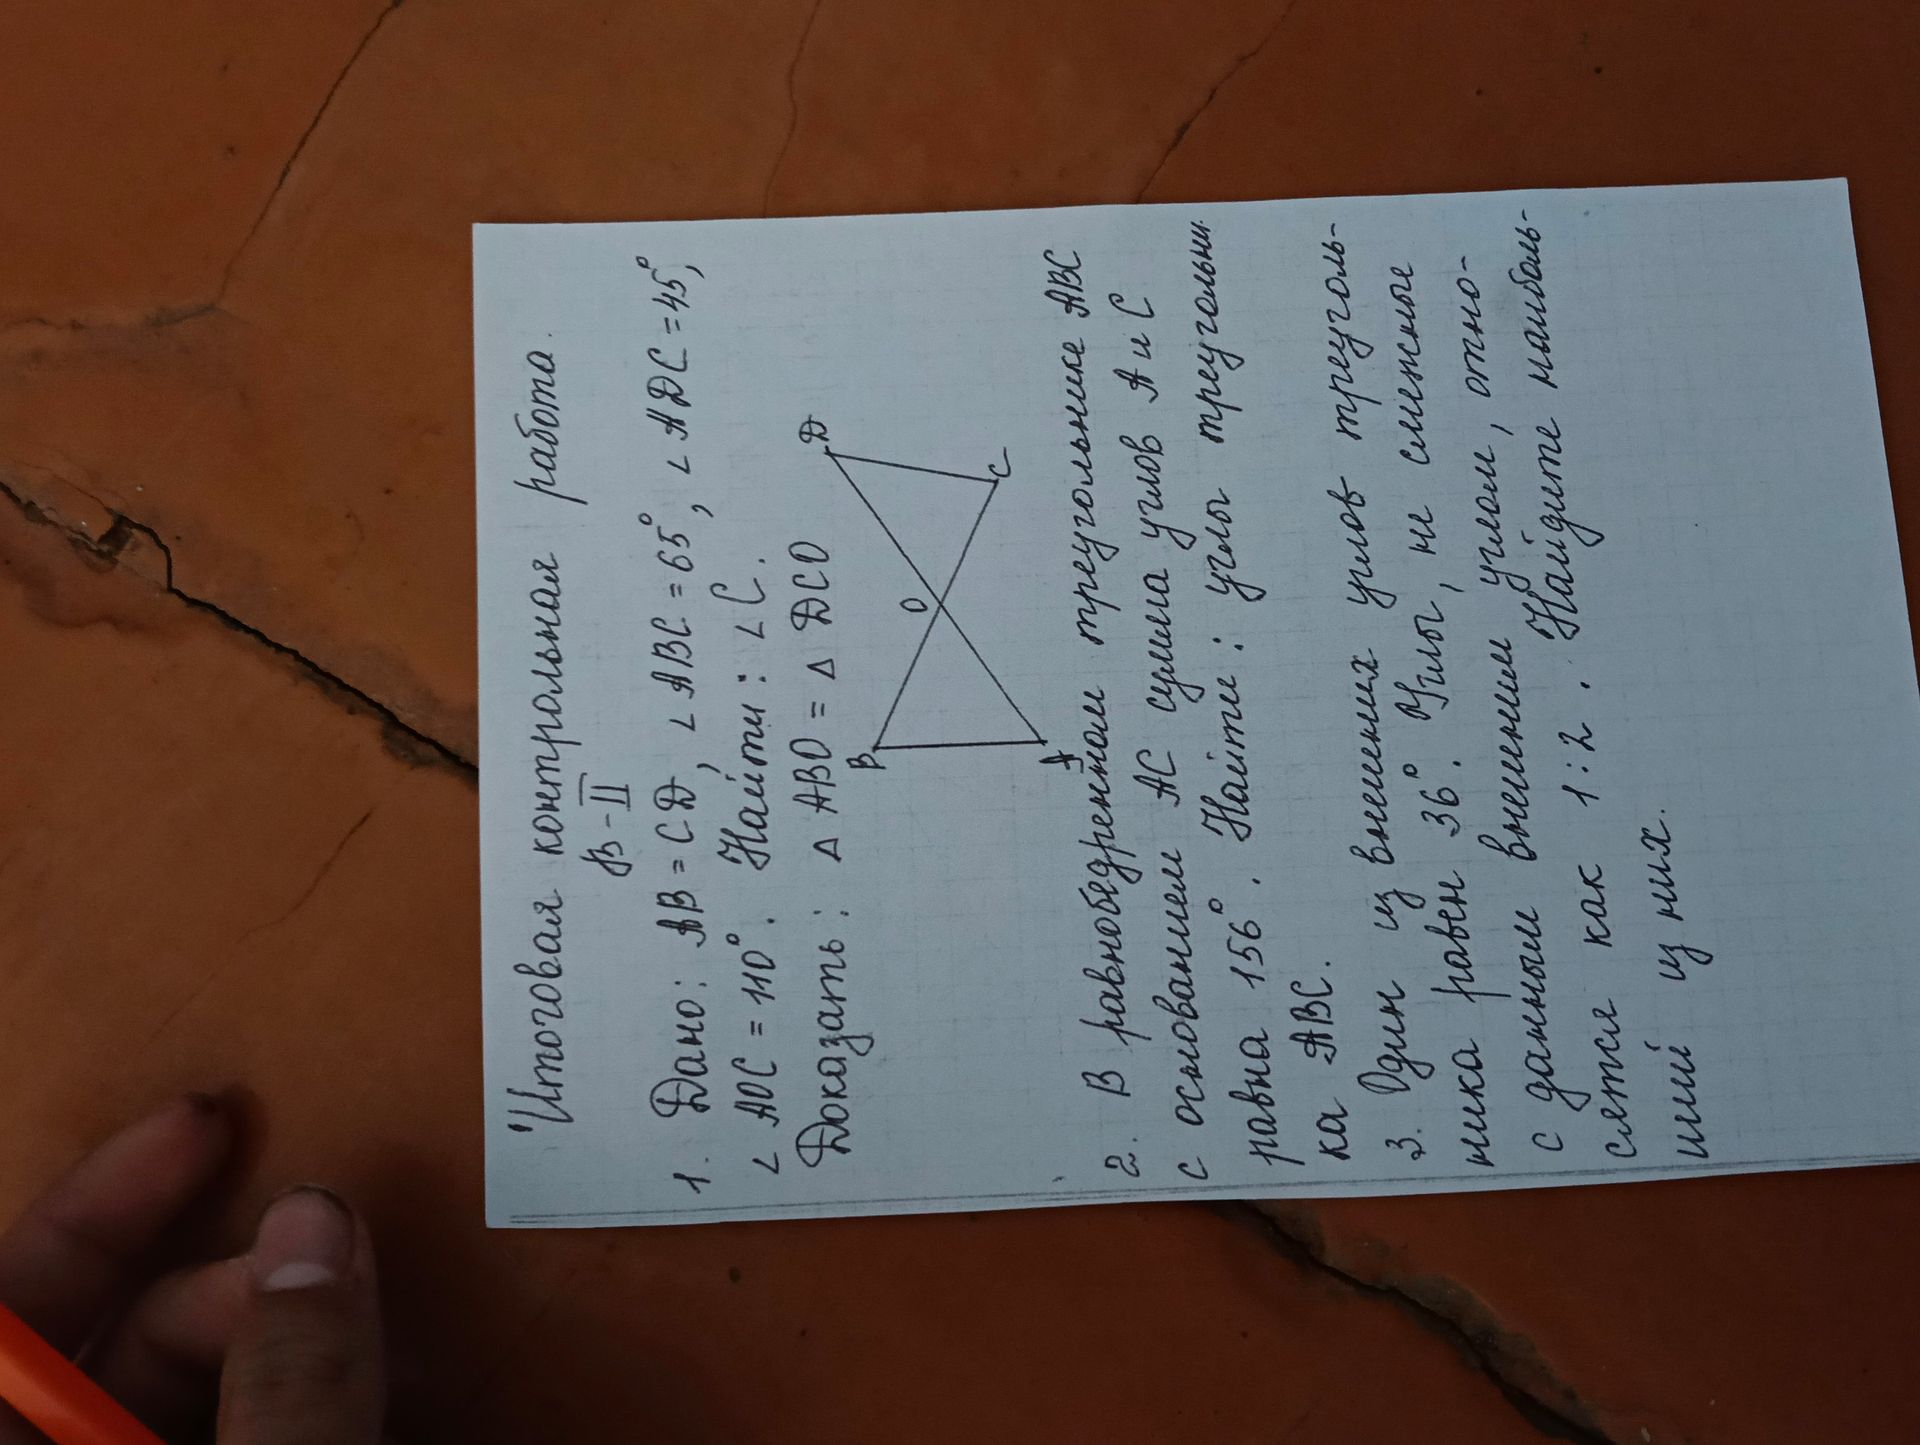 Итоговая контрольная работа.
В-II
1. Дано: AB = CD, ∠ABC = 65°, ∠ADC = 45°,
∠AOC = 110°. Найти: ∠C.
Доказать: △ABO = △DCO
B
O
D
A
C
2. В равнобедренном треугольнике ABC
с основанием AC сумма углов A и C
равна 156°. Найти: углы треугольни
ка ABC.
3. Один из внешних углов треуголь-
ника равен 36°. Углы, не смежные
с данным внешним углом, отно-
сятся как 1:2. Найдите наиболь-
ший из них.